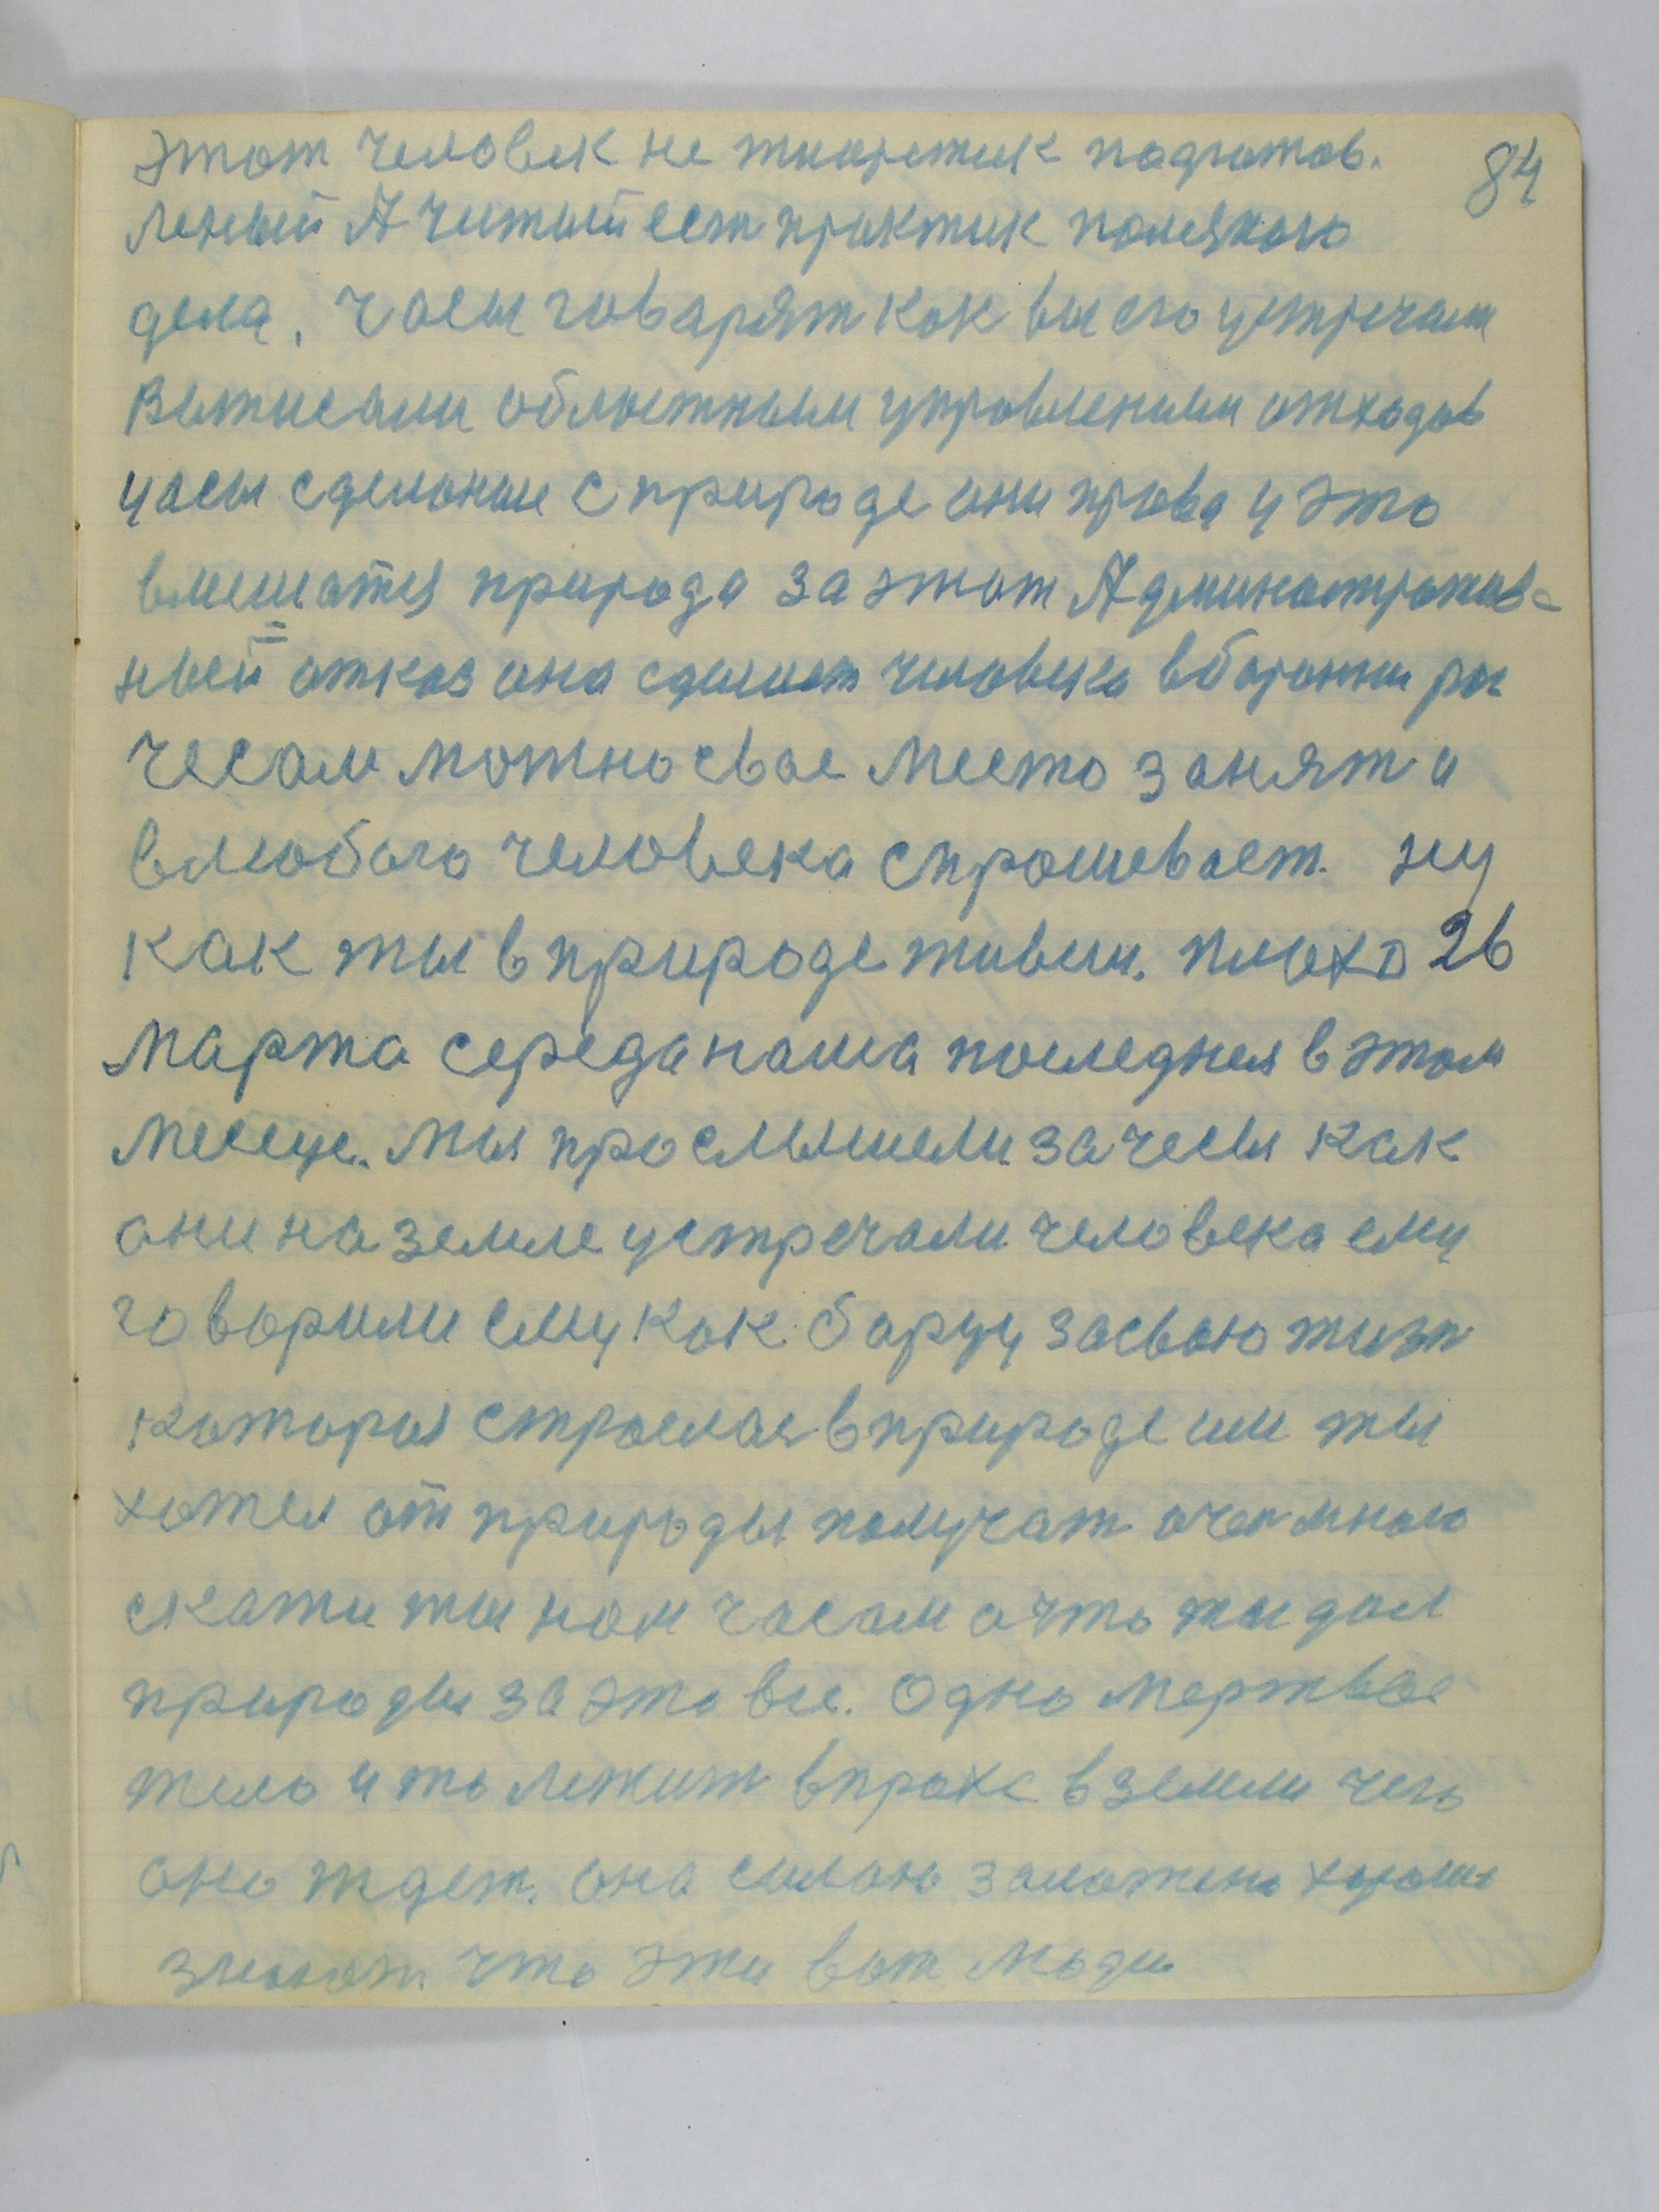 84
этот человек не тиоретик подготов.
леный А читый ест практик
дела, часы говарят как вы его устречали
облостным управлением отходов
часы сделоные с природе они права у это
вмешатся природа за этот Админостротив-
ный отказ она сделает человека
чесам можно свае место занят и
влюбого человека спрошевает. ну
как ты в природе живеш. плохо 26
марта середа наша последняя в этом
месеце. мы прослышели за чесы как
ани на земле устречали человека ему
говорили ему как борцу засваю жизн
которыя строелас в природе или ты
хотел от природы получат очен много
скажи ты нам часам а что ты дал
природы за это все. Одно мертвое
тело и то лежит впрахе в земли чего
оно ждет. она силоно заложено хорошо
знают что эти вот люди